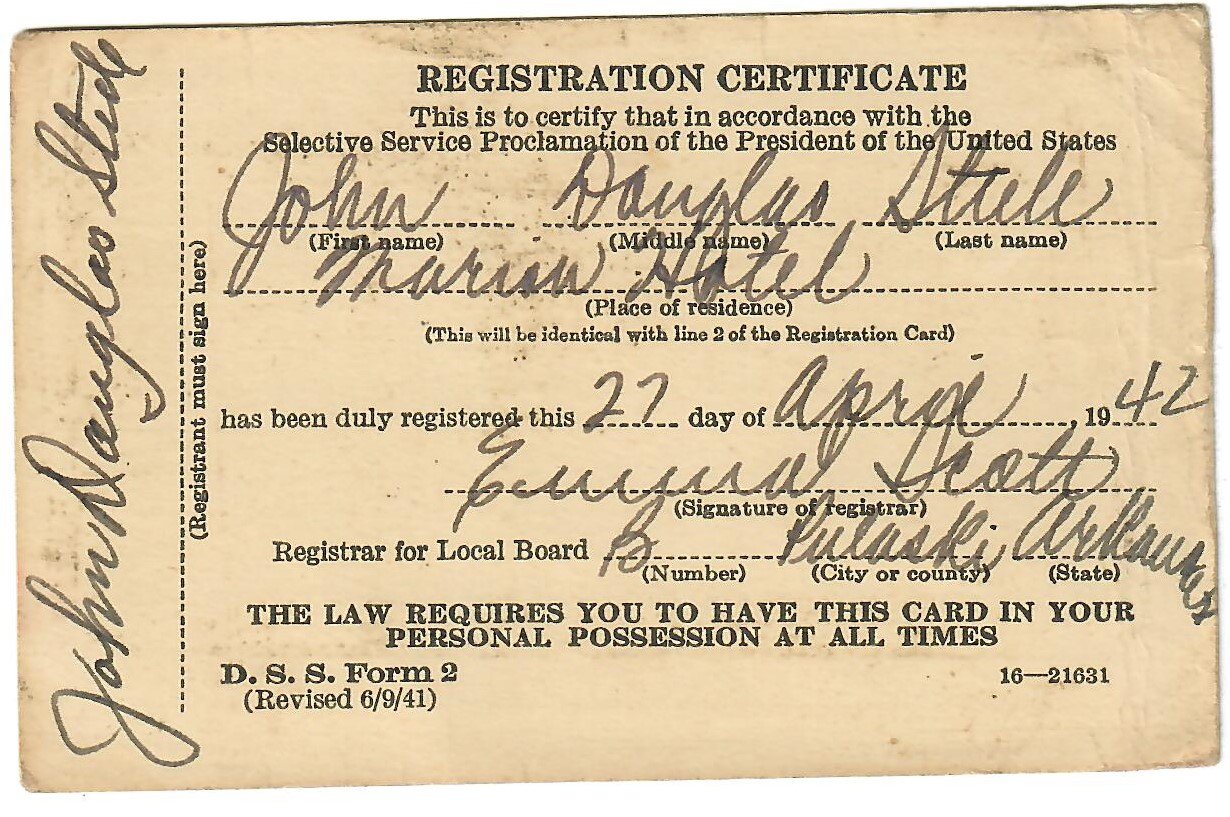 John Douglas Steele
(Registrant must sign here)
REGISTRATION CERTIFICATE
This is to certify that in accordance with the
Selective Service Proclamation of the President of the United States
John Douglas Steele
(First name) (Middle name) (Last name)
Marion Hotel
(Place of residence)
(This will be identical with line 2 of the Registration Card)
has been duly registered this 27 day of April, 1942
Emma Scott
(Signature of registrar)
Registrar for Local Board B Pulaski Arkansas
(Number) (City or county) (State)
THE LAW REQUIRES YOU TO HAVE THIS CARD IN YOUR
PERSONAL POSSESSION AT ALL TIMES
D. S. S. Form 2
(Revised 6/9/41)
16—21631